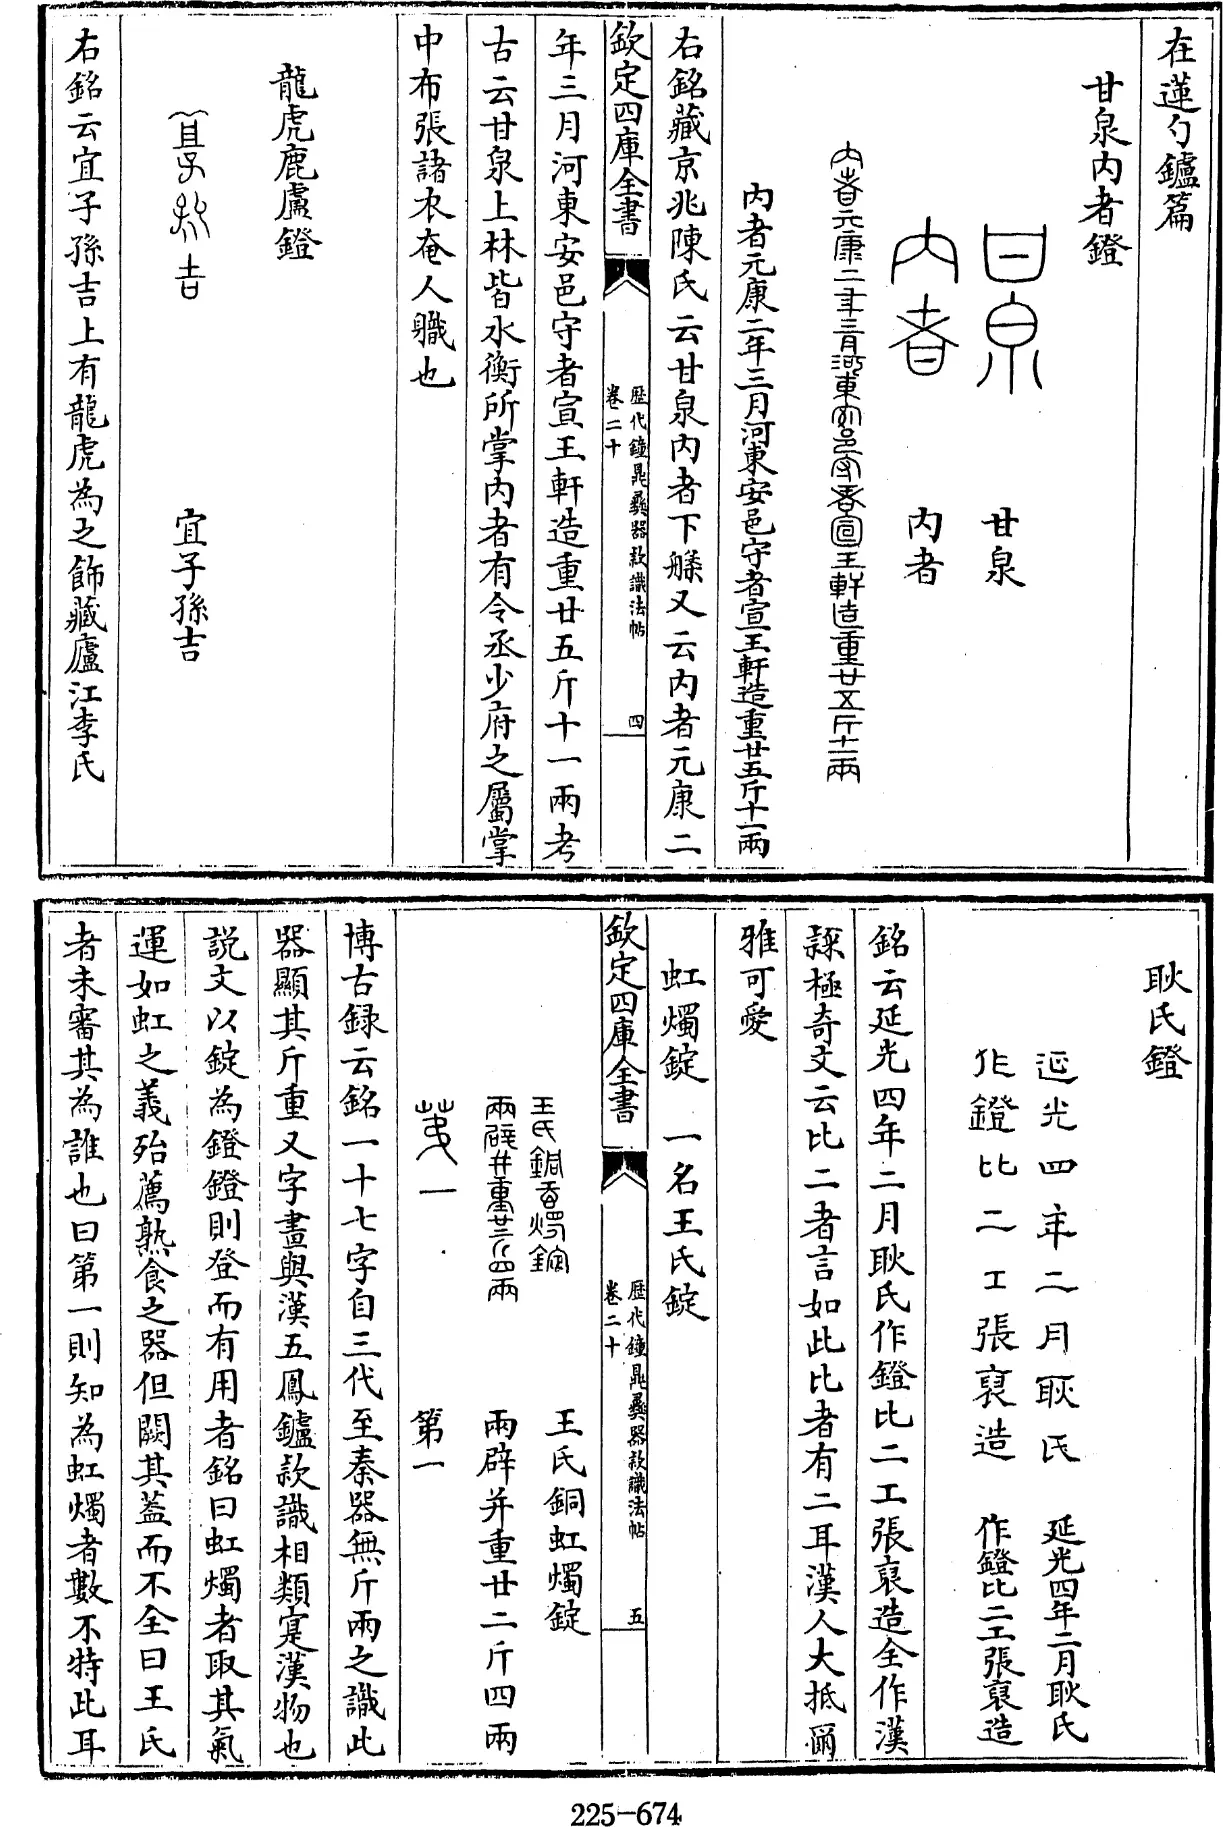 在蓮勺鑪篇
甘泉内者鐙
甘泉 甘泉
内者 内者
内者元康二年三月河東安邑守者宣王軒造重廿五斤十一兩
内者元康二年三月河東安邑守者宣王軒造重廿五斤十一兩
右銘藏京兆陳氏云甘泉内者下槃又云内者元康二
欽定四庫全書
歷代鐘鼎彝器款識法帖
卷二十
四
年三月河東安邑守者宣王軒造重廿五斤十一兩考
古云甘泉上林皆水衡所掌内者有令丞少府之屬掌
中布張諸衣奄人職也
龍虎鹿盧鐙
宜子孫吉 宜子孫吉
右銘云宜子孫吉上有龍虎為之飾藏廬江李氏
耿氏鐙
延光四年二月耿氏 延光四年二月耿氏
作鐙比二工張裒造 作鐙比二工張裒造
銘云延光四年二月耿氏作鐙比二工張裒造全作漢
隸極奇文云比二者言如此比者有二耳漢人大抵爾
雅可愛
虹燭錠 一名王氏錠
欽定四庫全書
歷代鐘鼎彝器款識法帖
卷二十
五
王氏銅虹燭錠 王氏銅虹燭錠
兩辟并重廿二斤四兩 兩辟并重廿二斤四兩
第一 第一
博古録云銘一十七字自三代至秦器無斤兩之識此
器顯其斤重又字畫與漢五鳳鑪款識相類寔漢物也
説文以錠為鐙鐙則登而有用者銘曰虹燭者取其氣
運如虹之義殆薦熟食之器但闕其蓋而不全曰王氏
者未審其為誰也曰第一則知為虹燭者數不特此耳
225-674